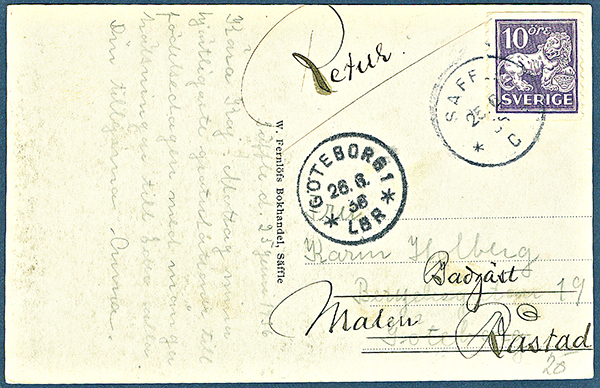 Retur.
10 öre
SVERIGE
SÄFFLE
25.6.
C
GÖTEBORG 1
26.6.
36
LBR
W. Fernlöfs Bokhandel, Säffle
Säffle d. 25
Kära
Mottag mina
hjärtligaste gratulationer till
födelsedagen med många
hälsningar till Eder alla
Din tillgivna Anna.
Fru
Karin Holberg
19
Göteborg
Badgäst
Malen
Båstad
20